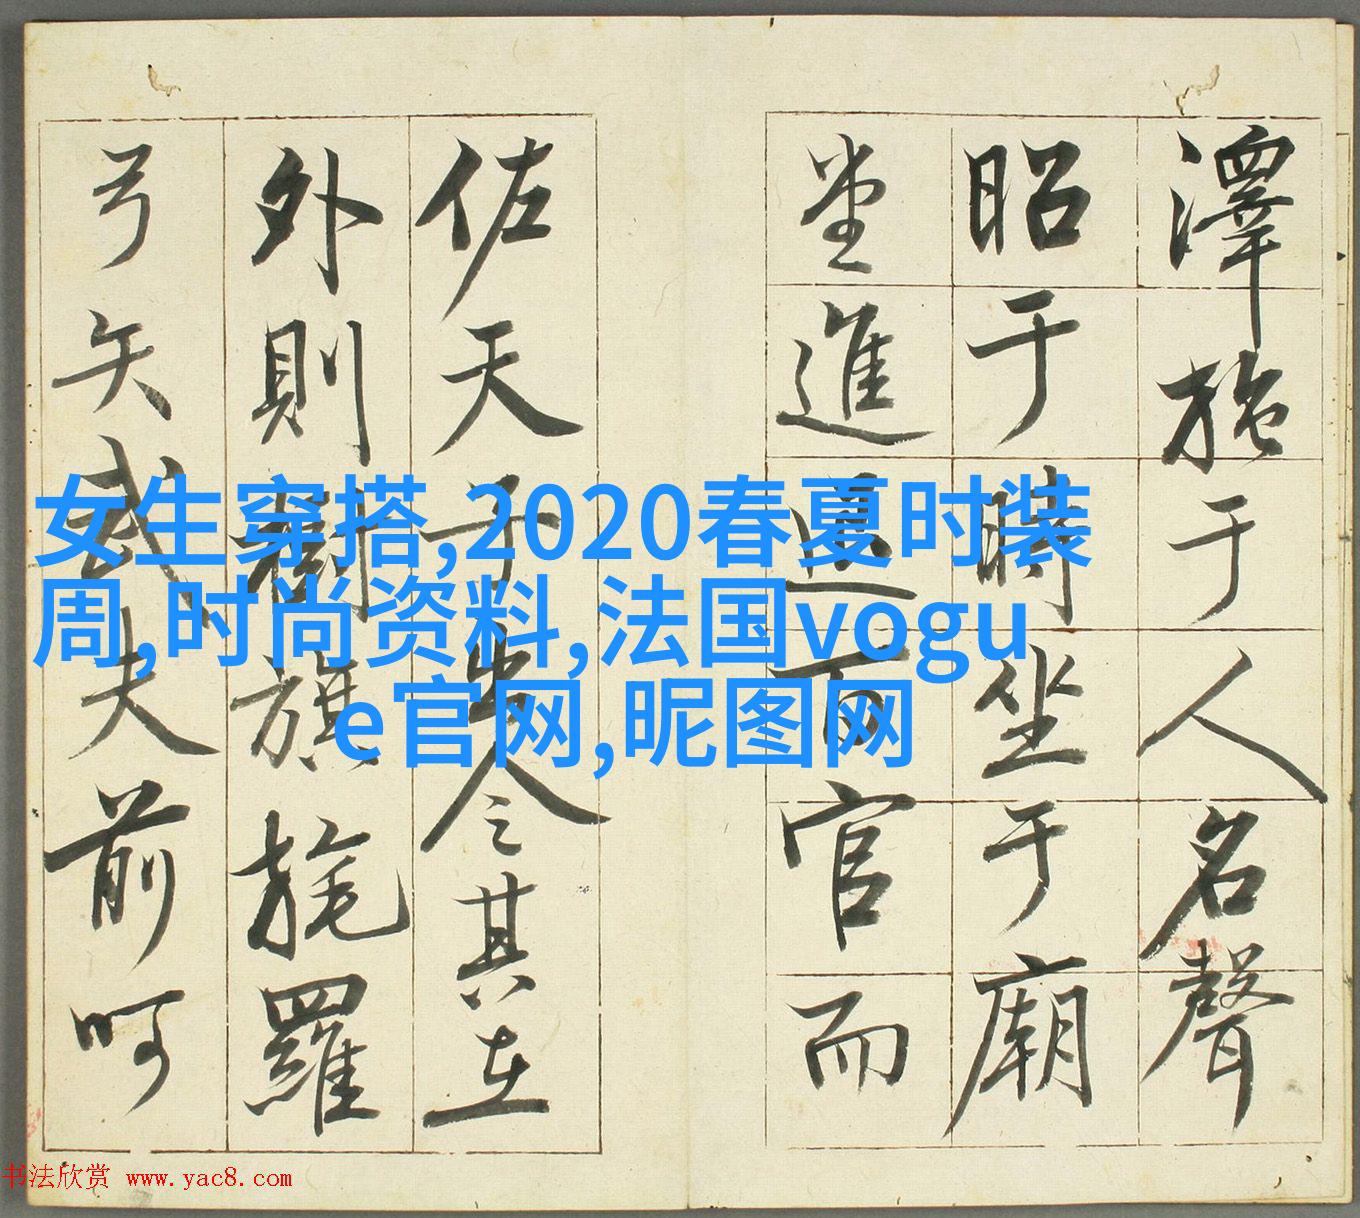 澤施于人名聲
昭于時坐于廟
堂進退百官而
佐天子出令其在
外則樹旗旄羅
弓矢武夫前呵
女生穿搭,2020春夏时装
周,时尚资料,法国vogu
e官网,昵图网
书法欣赏 www.yac8.com